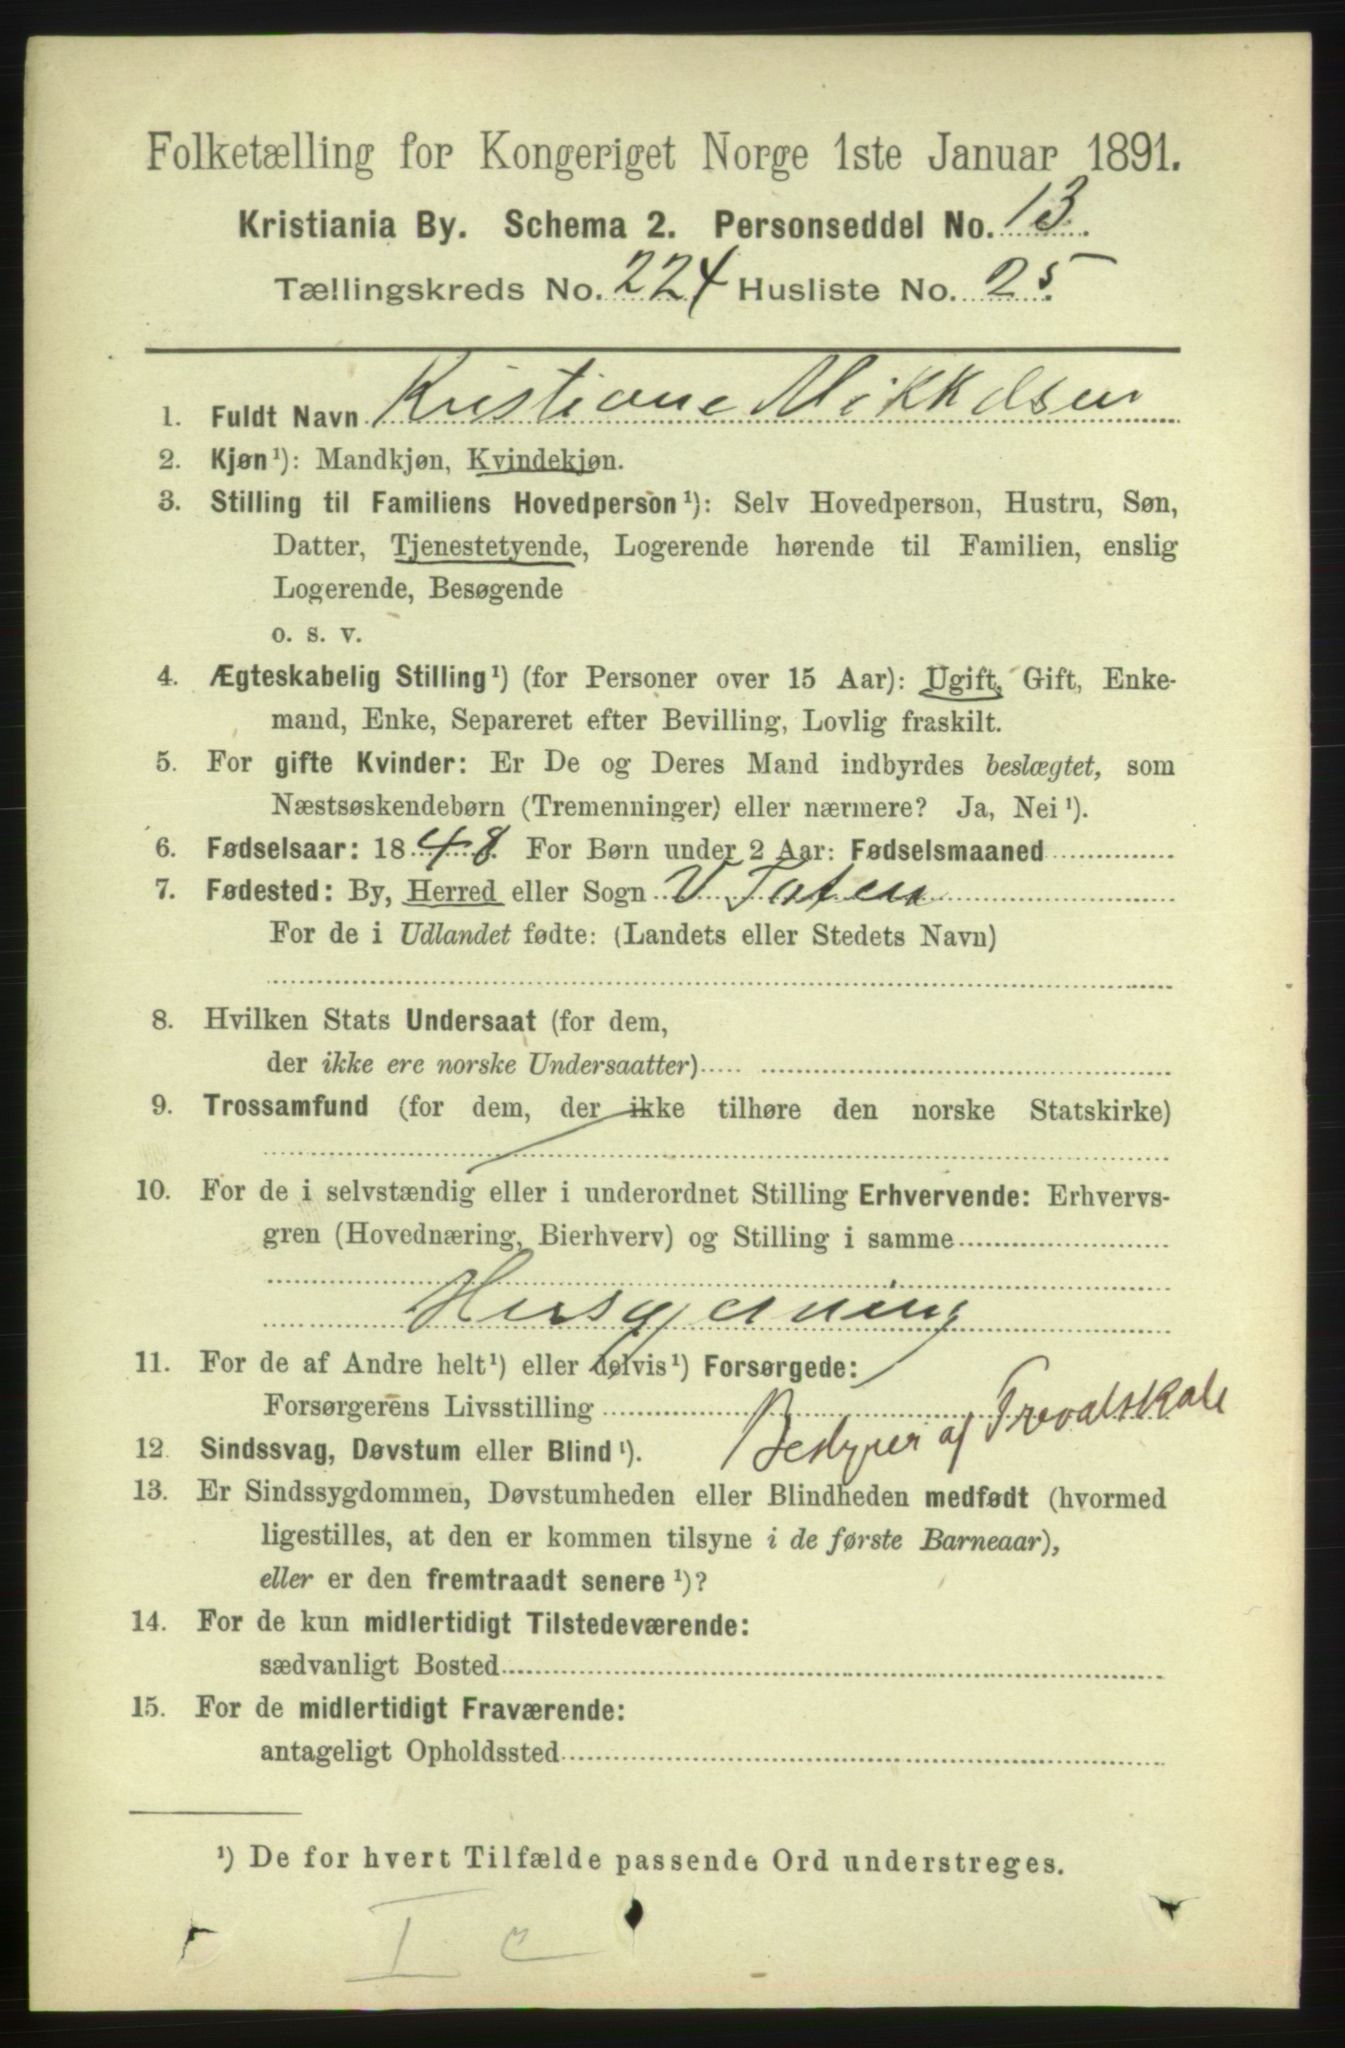 Folketælling for Kongeriget Norge 1ste Januar 1891.
Kristiania By. Schema 2. Personseddel No. 13.
Tællingskreds No. 224 Husliste No. 25.
1. Fuldt Navn Kristiane Mikkelsen
2. Kjøn¹): Mandkjøn, Kvindekjøn.
3. Stilling til Familiens Hovedperson¹): Selv Hovedperson, Hustru, Søn,
Datter, Tjenestetyende, Logerende hørende til Familien, enslig
Logerende, Besøgende
o. s. v.
4. Ægteskabelig Stilling¹) (for Personer over 15 Aar): Ugift, Gift, Enke-
mand, Enke, Separeret efter Bevilling, Lovlig fraskilt.
5. For gifte Kvinder: Er De og Deres Mand indbyrdes beslægtet, som
Næstsøskendebørn (Tremenninger) eller nærmere? Ja, Nei¹).
6. Fødselsaar: 1848. For Børn under 2 Aar: Fødselsmaaned
7. Fødested: By, Herred eller Sogn V Toten
For de i Udlandet fødte: (Landets eller Stedets Navn)
8. Hvilken Stats Undersaat (for dem,
der ikke ere norske Undersaatter)
9. Trossamfund (for dem, der ikke tilhøre den norske Statskirke)
10. For de i selvstændig eller i underordnet Stilling Erhvervende: Erhvervs-
gren (Hovednæring, Bierhverv) og Stilling i samme
Husgjerning
11. For de af Andre helt¹) eller delvis¹) Forsørgede:
Forsørgerens Livsstilling
Bestyrer af
12 Sindssvag, Døvstum eller Blind¹).
13. Er Sindssygdommen, Døvstumheden eller Blindheden medfødt (hvormed
ligestilles, at den er kommen tilsyne i de første Barneaar),
eller er den fremtraadt senere¹)?
14. For de kun midlertidigt Tilstedeværende:
sædvanligt Bosted
15. For de midlertidigt Fraværende:
antageligt Opholdssted
¹) De for hvert Tilfælde passende Ord understreges.
I c